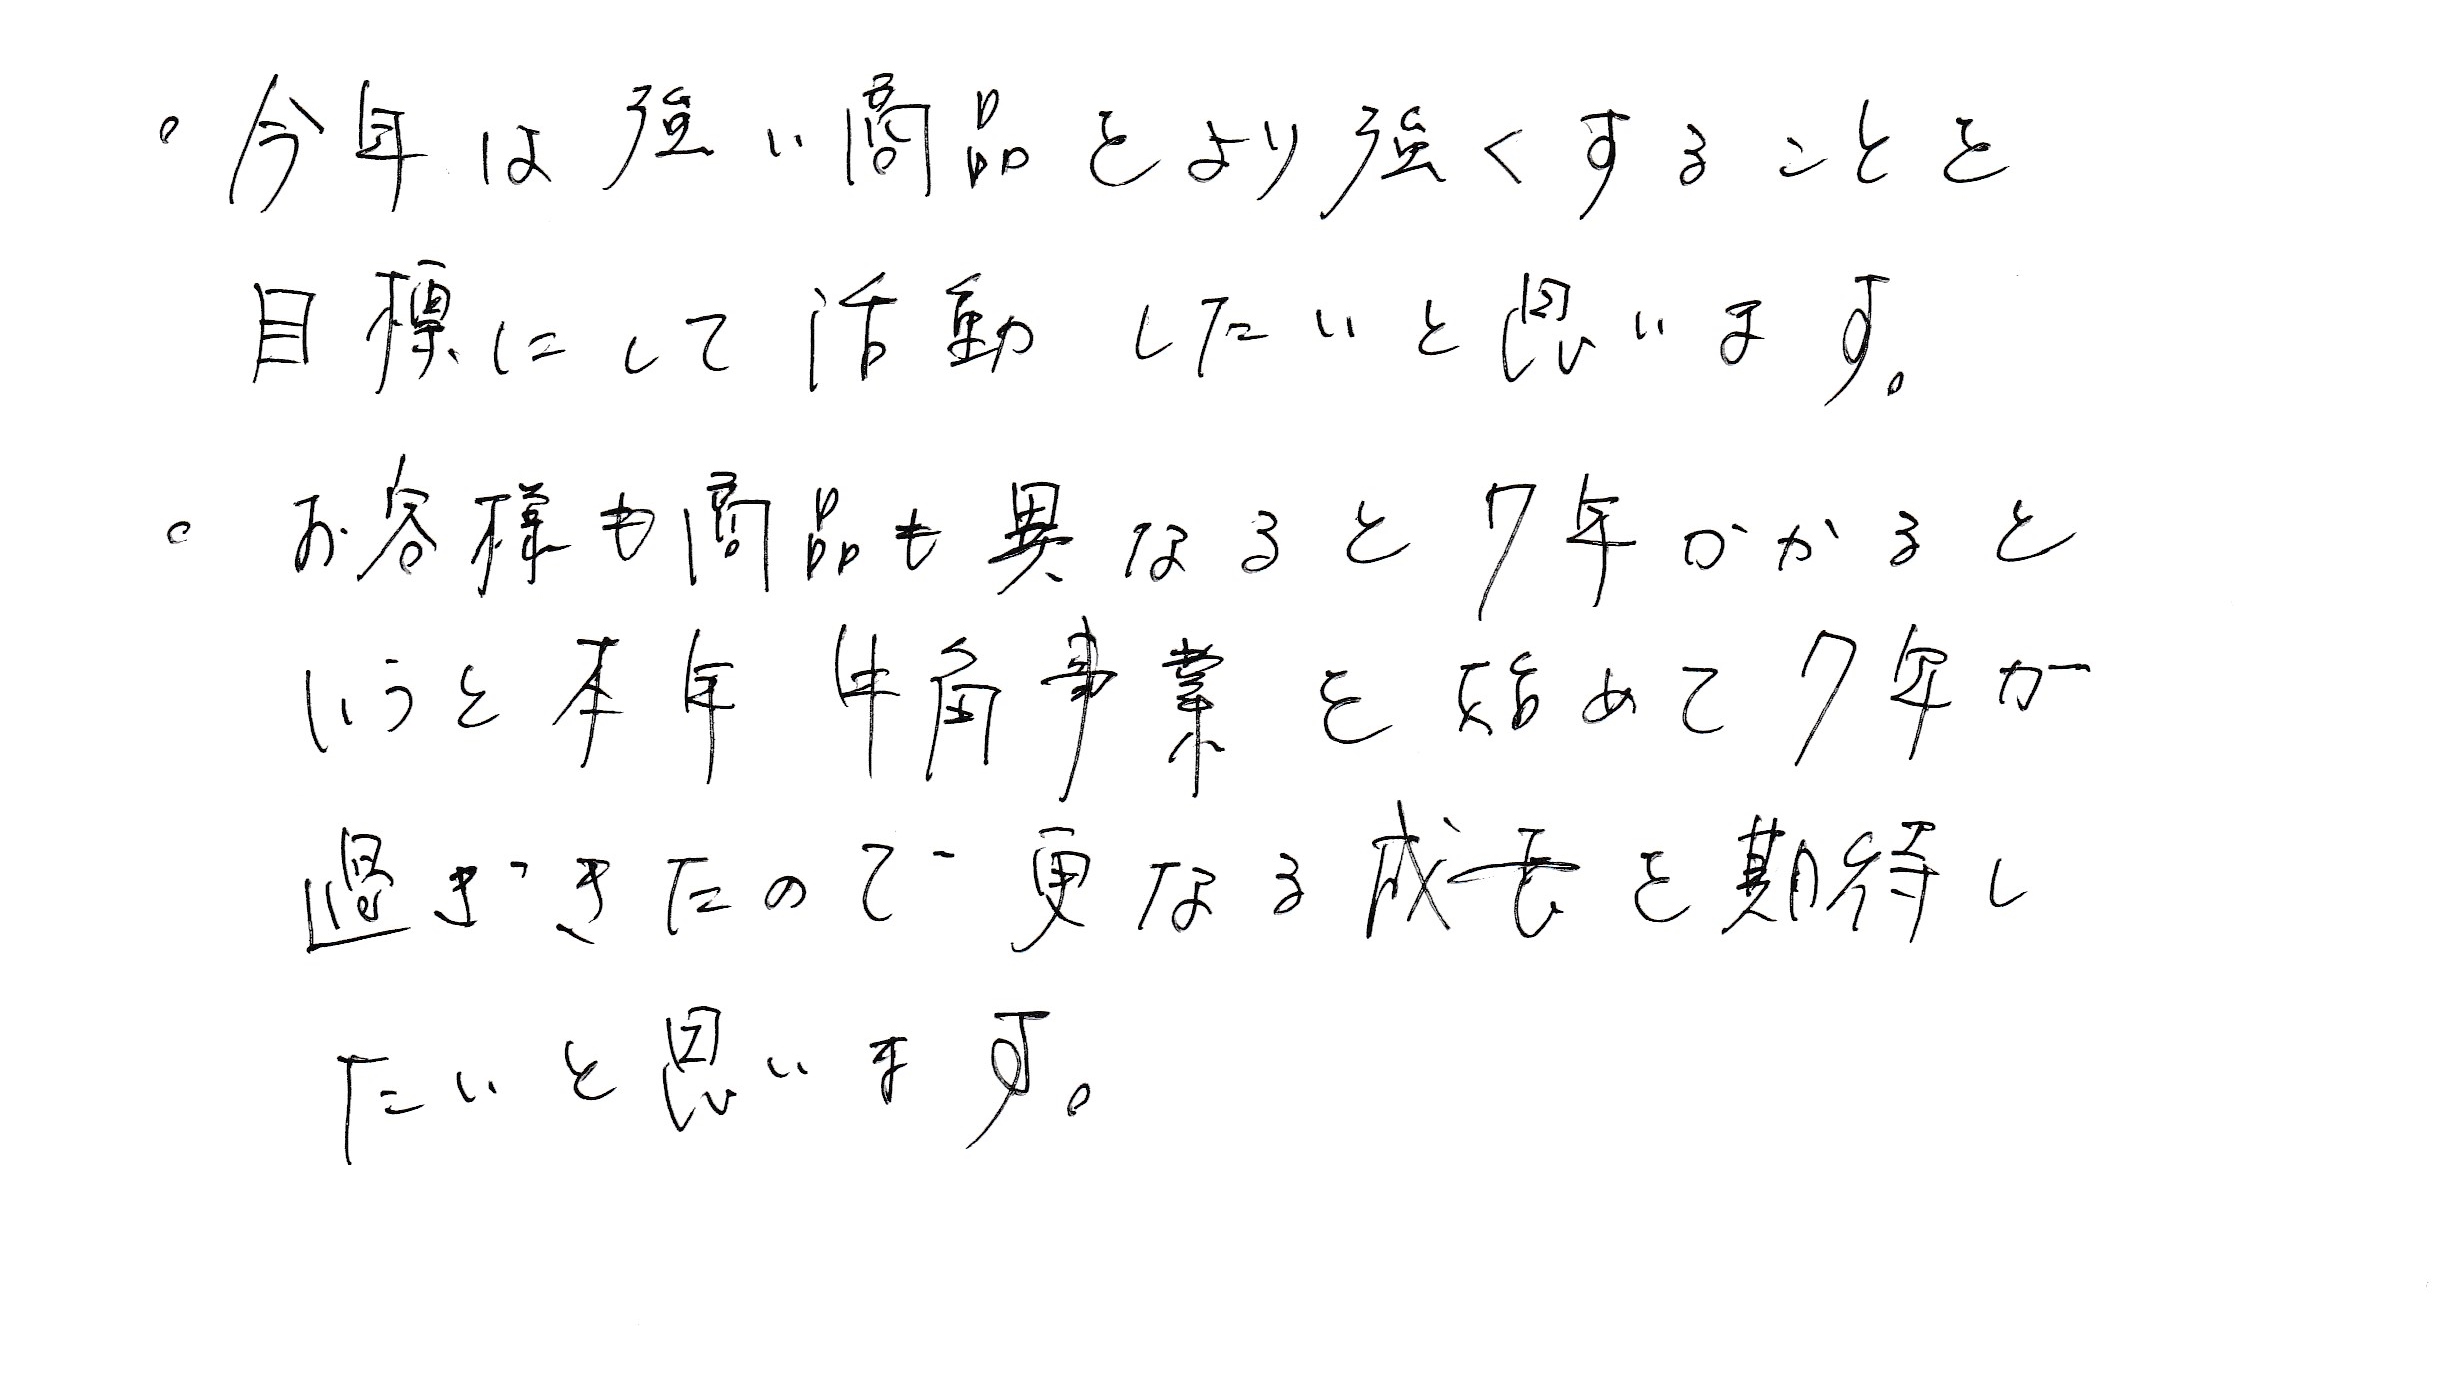 。今年は強い商品をより強くすることを
目標にして活動したいと思います。
。お客様も商品も異なると7年がかかると
いうと本年牛角事業を始めて7年が
過ぎきたので更なる成長を期待し
たいと思います。